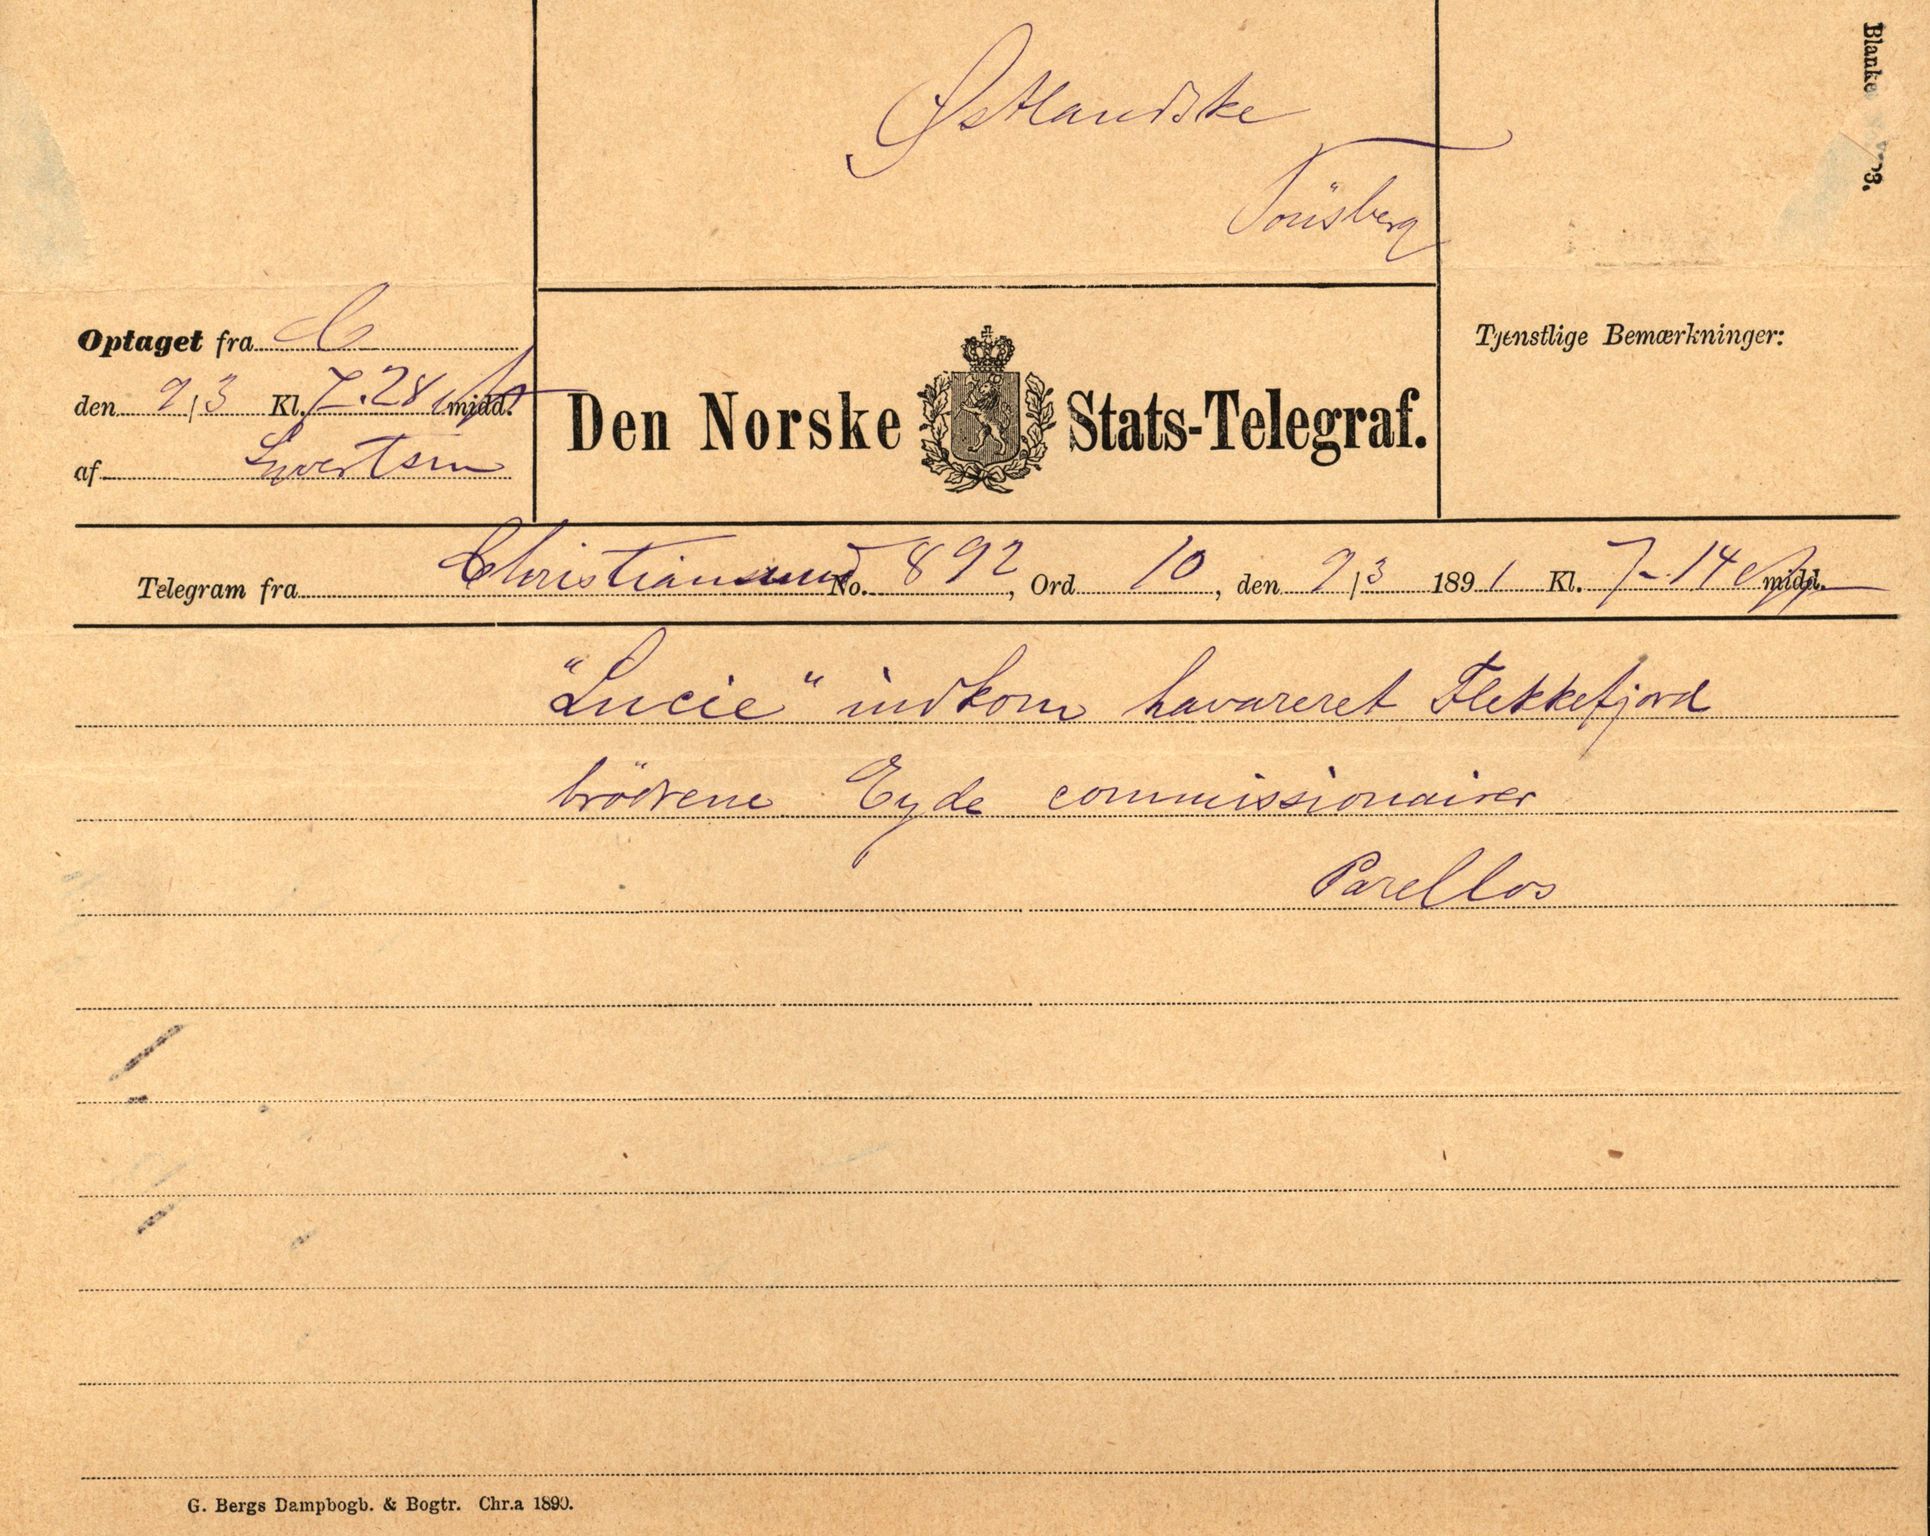 Blanke
Østlandske
Tönsberg
Optaget fra C
den 9/3 Kl. 7.28 midd.
af Syvertsen
Den Norske Stats-Telegraf.
Tjenstlige Bemærkninger:
Telegram fra Christiansund No. 892, Ord 10, den 9/3 1891 Kl. 7-14 midd.
"Lucie" indkom havareret Flekkefjord
brödrene Eyde commissionairer
Parellos
G. Bergs Dampbogb. & Bogtr. Chr.a 1890.